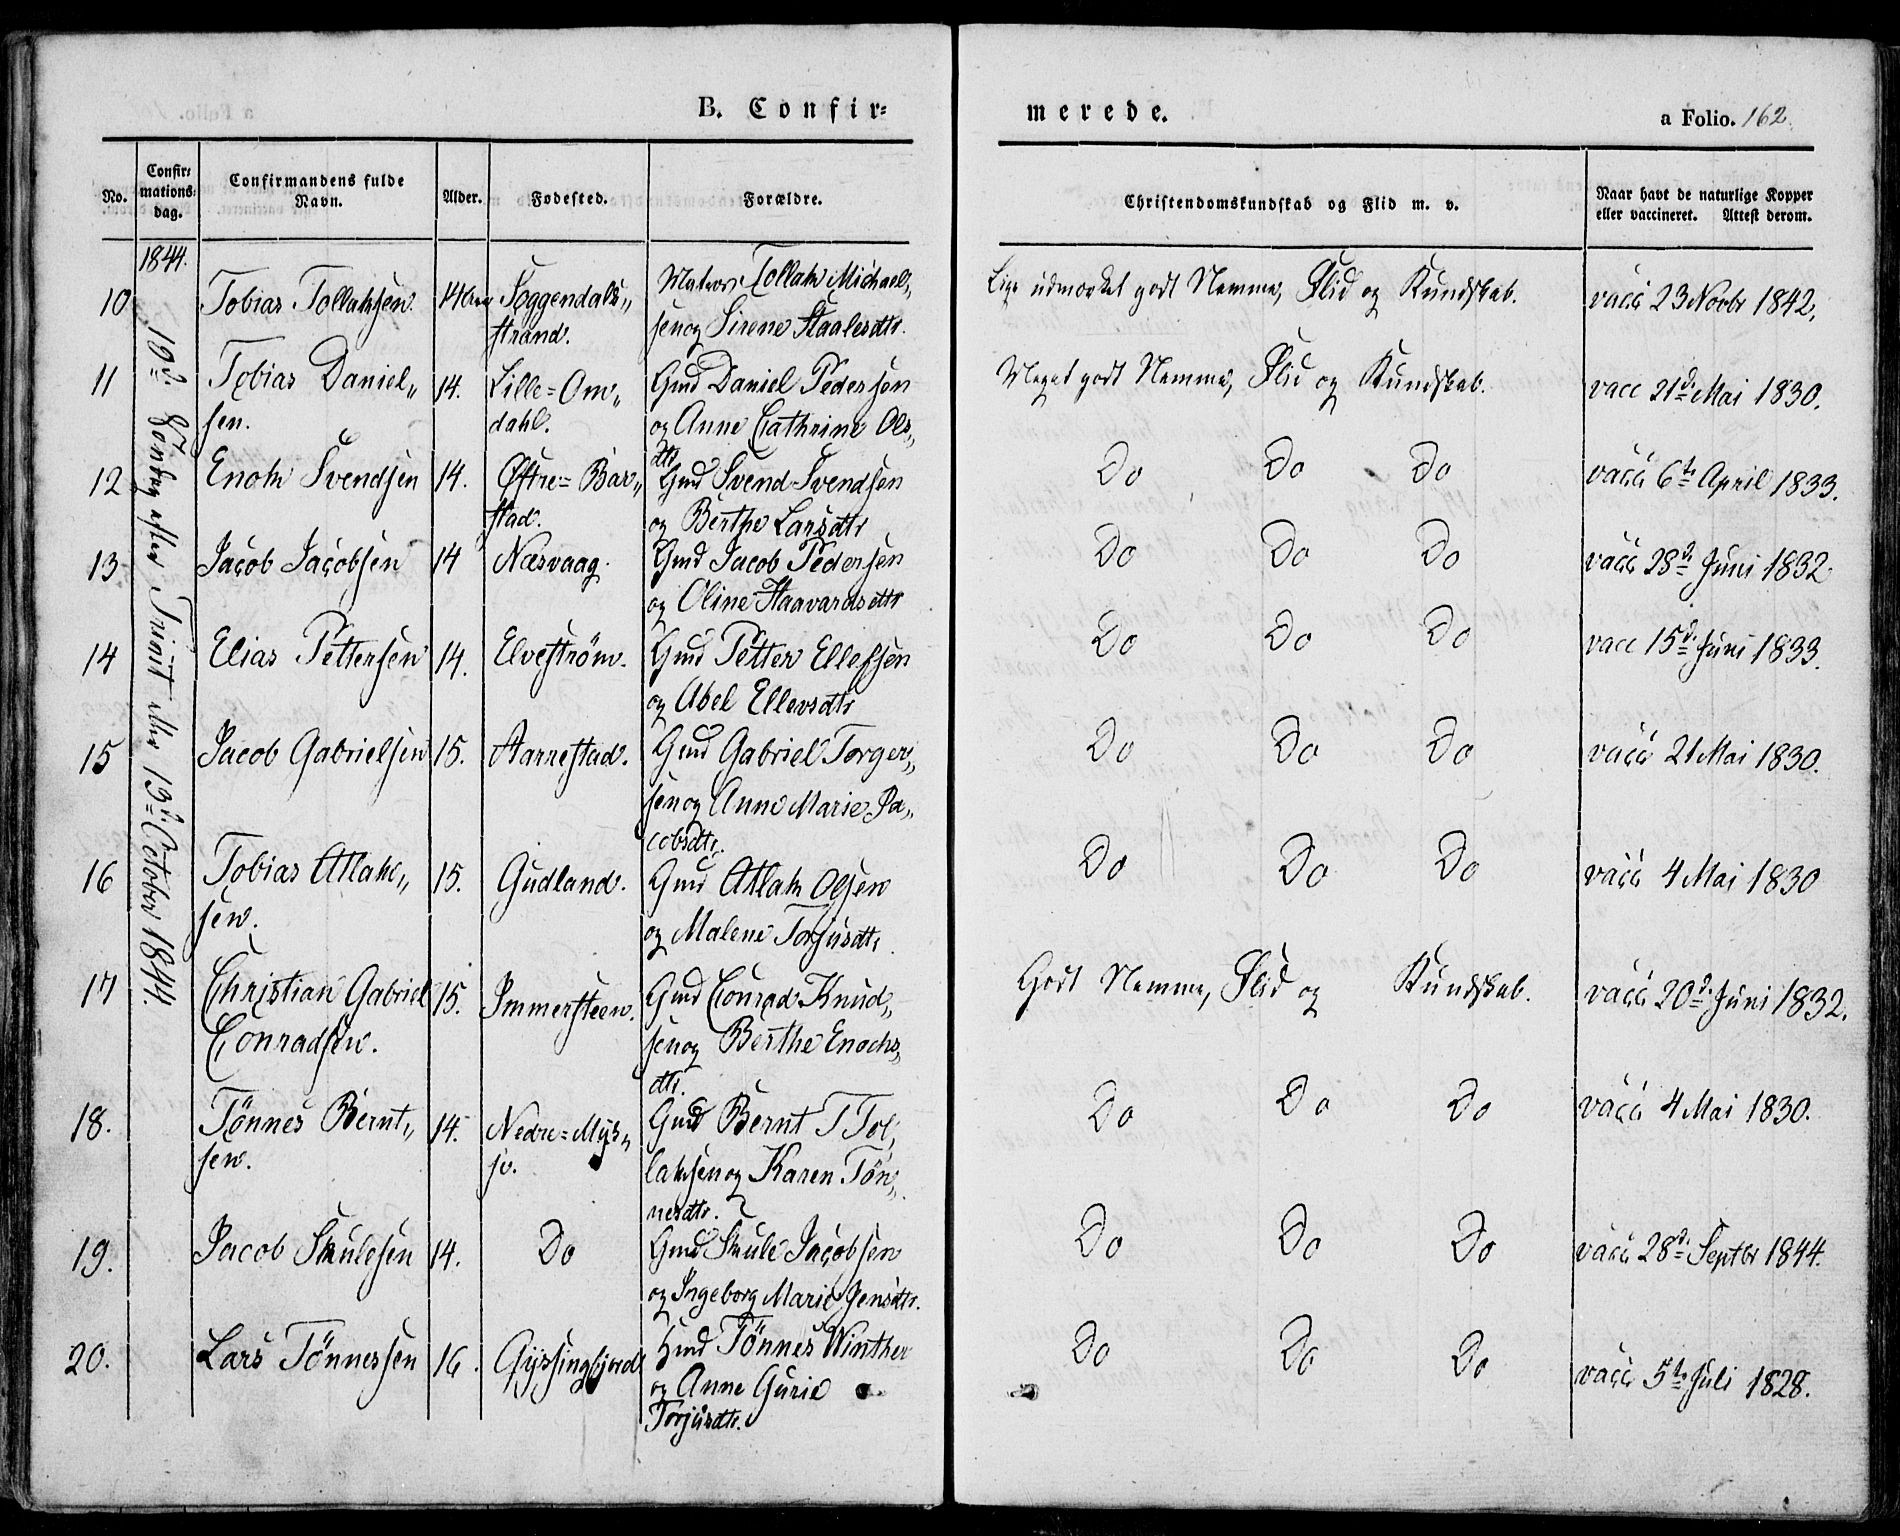 B. Confir=
merede.
a Folio. 162.
No.
Confir=
mations=
dag.
Confirmandens fulde
Navn.
Alder.
Fødested.
Forældre.
Christendomskundskab og Flid m. v.
Naar havt de naturlige Kopper
eller vaccineret. Attest derom.
1844.
10de Søndag efter Trinit eller 13de October 1844.
10 Tobias Tollaksen. 14 Soggendals„ Tollak Michael„
strand. sen og Sirene Staalesdtr.
Lige udmærket godt Nemme, Flid og Kundskab. vacc 23 Novbr 1842.
11 Tobias Daniel„ 14. Lille=Om„ Gmd Daniel Pedersen
sen. dahl. og Anne Cathrine Ols„
dtr
Meget godt Nemme, Flid og Kundskab. vacc 21d Mai 1830.
12 Enok Svendsen 14. Østre=Bar„ Gmd Svend Svendsen
stad. og Berthe Larsdtr
Do Do Do vacc 6te April 1833.
13 Jacob Jacobsen 14 Næsvaag. Gmd Jacob Pedersen
og Oline Haavardsdtr
Do Do Do vacc 28d Juni 1832
14 Elias Pettersen 14. Elvestrøm. Gmd Petter Ellefsen
og Abel Ellevsdtr
Do Do Do vacc 15d Juni 1833.
15 Jacob Gabrielsen 15. Aarrestad. Gmd Gabriel Torger„
sen og Anne Marie Ja„
cobsdtr.
Do Do Do vacc 21 Mai 1830.
16 Tobias Atlak„ 15. Gudland. Gmd Atlak Olsen
sen. og Malene Torjusdtr
Do Do Do vacc 4 Mai 1830
17 Christian Gabriel 15. Immersteen. Gmd Conrad Knud„
Conradsen. sen og Berthe Enochs„
dtr.
Godt Nemme, Flid og Kundskab. vacc 20d Juni 1832.
18. Tönnes Bernt„ 14. Nedre=Mys„ Gmd Bernt T Tol„
sen. se. laksen og Karen Tön„
nesdtr.
Do Do Do vacc 4 Mai 1830.
19. Jacob Skulesen 14. Do Gmd Skule Jacobsen
og Ingeborg Marie Jensdtr.
Do Do Do vacc 28d Septbr 1844.
20. Lars Tönnessen 16. Gyssingfjord Hmd Tönnes Winther
og Anne Gurie
Torjusdtr.
Do Do Do vacc 5te Juli 1828.